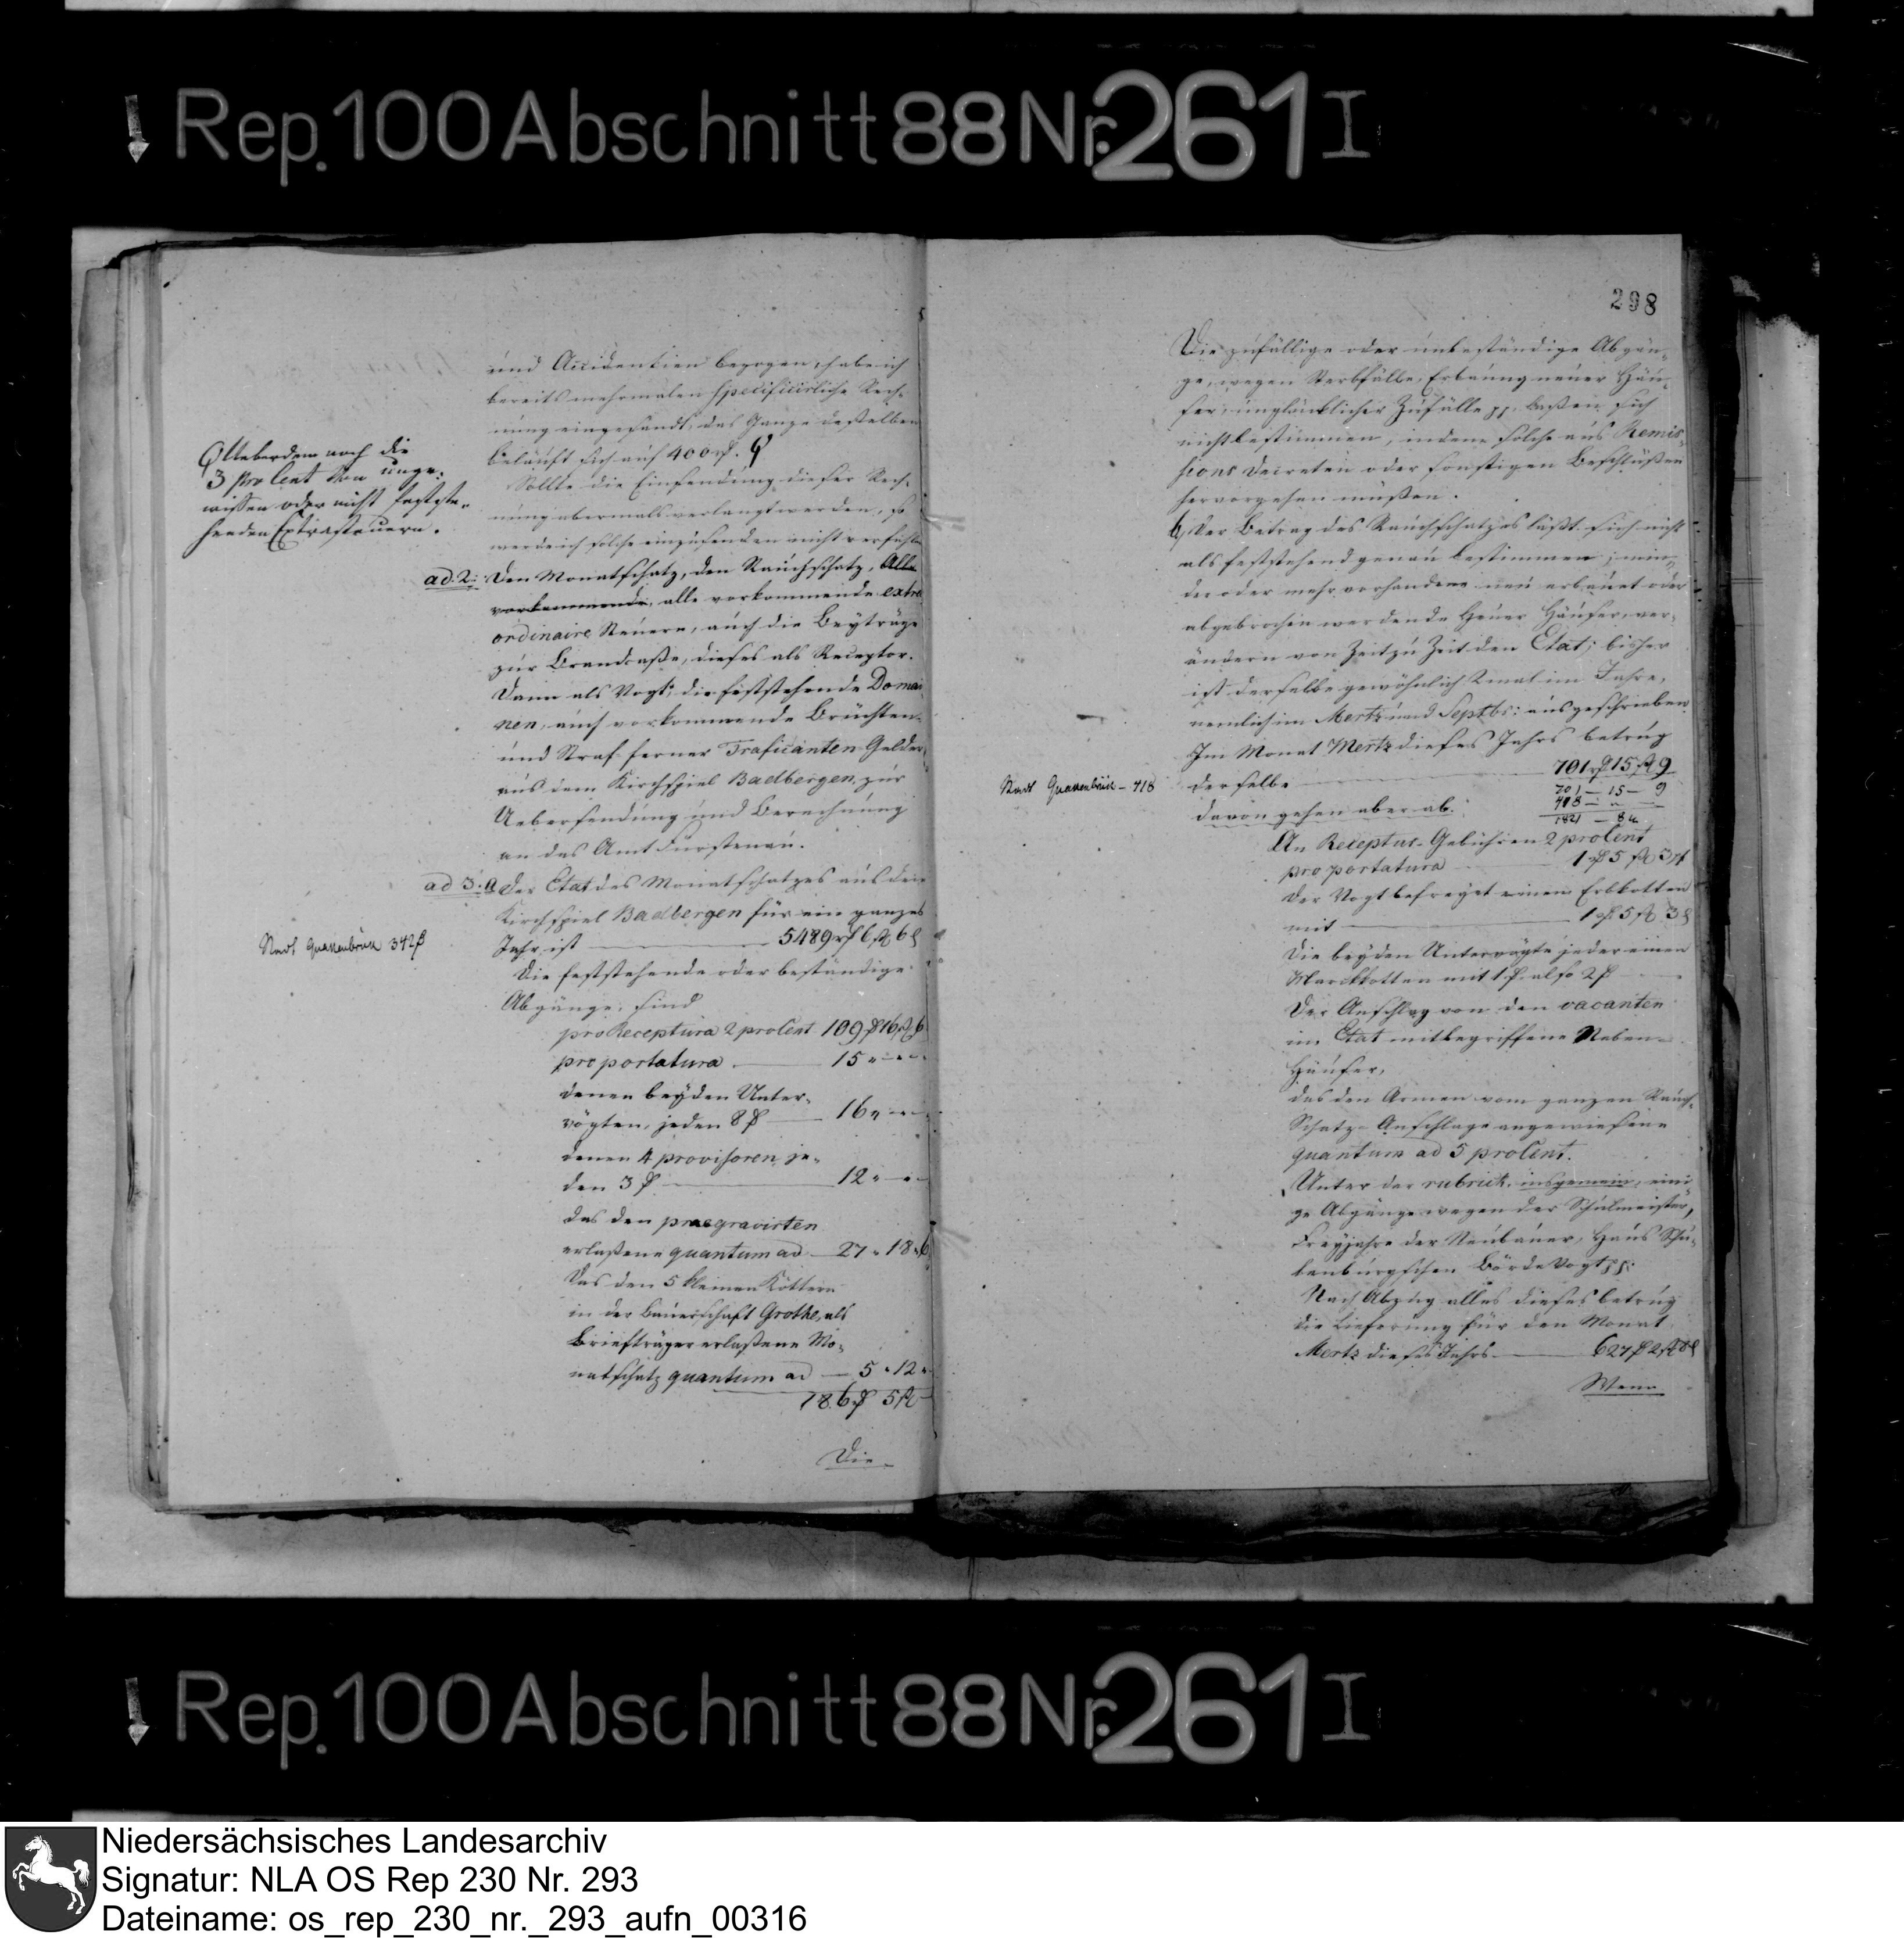 Rep. 100 Abschnitt 88 Nr. 261 I
und Accidentien bezogen, habe ich
bereits mehrmalen specificirliche Rech-
nung eingesandt, das Ganze desselben
beläuft sich auf 400 rf.
Sollte die Einsendung dieser Rech-
nung abermals verlangt werden, so
werde ich solche einzusenden nicht verfehlen
Ueberdem noch die
3 pro Cent von unge-
wissen oder nicht festste-
henden Extrasteuern.
ad. 2. Den Monatschatz, den Rauchschatz, Alle
vorkommende, alle vorkommende extra
ordinaire Steuern, auch die Beyträge
zur Brandcasse, dieses als Receptor.
Dann als Vogt, die feststehende Domai
nen, auch vorkommende Brüchten-
und Straf- ferner Traficanten-Gelder,
aus dem Kirchspiel Badbergen, zur
Uebersendung und Berechnung
an das Amt Fürstenau.
ad 3. a Der Etat des Monatschatzes aus dem
Kirchspiel Badbergen für ein ganzes
Jahr ist 5489 rf 6 ß 6 d
Stadt Quakenbrück 342
Die feststehende oder beständige
Abgänge, sind
pro Receptura 2 pro Cent 109 16 6
pro portatura 15 " - " -
denen beyden Unter-
vögten, jeden 8 16 " - " -
denen 4 provisoren, je-
den 3 12 " - " -
das den praegravirten
erlassene quantum ad 27 " 18 " 6
Das den 5 kleinen Köttern
in der Bauerschaft Grothe, als
Briefträger erlassene Mo-
natschatz quantum ad 5 " 12 "
186 5 ß
Die
298
Die zufällige oder unbeständige Abgän-
ge, wegen Sterbfälle, Erbauung neuer Häu-
ser, unglücklicher Zufälle pp. lassen sich
nicht bestimmen, indem solche aus Remis-
sions Decreten oder sonstigen Beschlüssen
hervorgehen müssen.
b, Der Betrag des Rauchschatzes lässt sich nicht
als feststehend genau bestimmen; min-
der oder mehr vorhandene neu erbauet oder
abgebrochen werdende Heuer Häuser, ver-
ändern von Zeit zu Zeit den Etat; bisher
ist derselbe gewöhnlich 2 mal im Jahre,
nemlich im Mertz und Septbr: ausgeschrieben.
Im Monat Mertz dieses Jahrs betrug
derselbe 701 rf 15 ß 9
Stadt Quakenbrück - 418
701 - 15 - 9
davon gehen aber ab.
An Receptur-Gebühren 2 pro Cent
pro portatura 1 rf 5 ß 3
Der Vogt befreyet einen Erbkotten
mit 1 rf 5 ß 3 d
Die beyden Untervögte jeder einen
Marckkotten mit 1 also 2
Der Anschlag von den vacanten
im Etat mitbegriffene Neben-
Häuser,
das den Armen vom ganzen Rauch-
Schatz-Anschlage angewiesene
quantum ad 5 pro Cent.
Unter der rubrick. insgemein, eini
ge Abgänge wegen der Schulmeister,
Freyjahre der Neubauer, Haus Schu-
lenburgschen Börde Vogt pp:
Nach Abzug alles dieses betrug
die Lieferung für den Monat
Mertz dieses Jahrs 627 2 ß 8 d
Wenn
Rep. 100 Abschnitt 88 Nr. 261 I
Niedersächsisches Landesarchiv
Signatur: NLA OS Rep 230 Nr. 293
Dateiname: os_rep_230_nr._293_aufn_00316